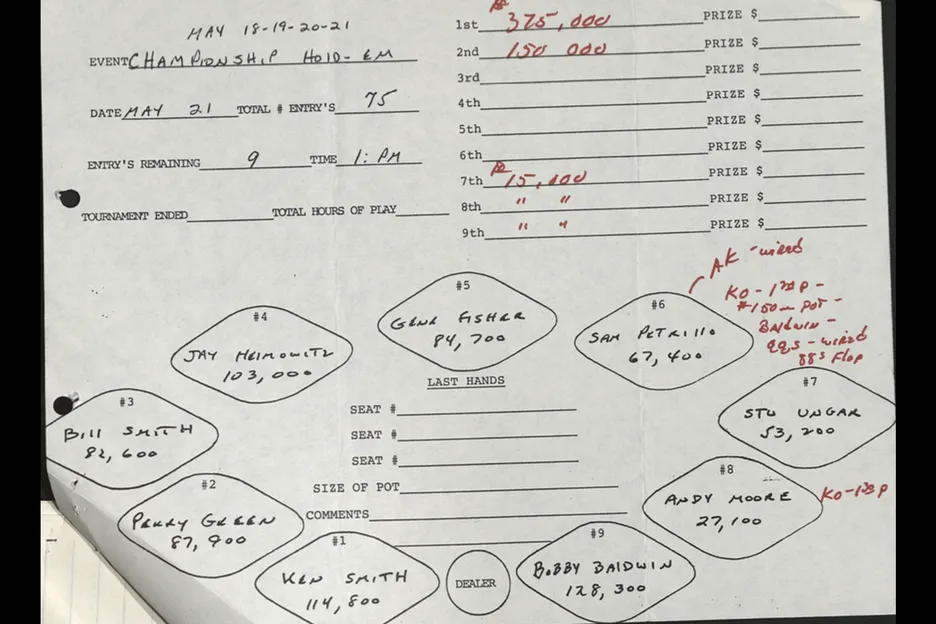 MAY 18-19-20-21
EVENT CHAMPIONSHIP HOLD-EM
DATE MAY 21 TOTAL # ENTRY'S 75
ENTRY'S REMAINING 9 TIME 1: PM
TOURNAMENT ENDED TOTAL HOURS OF PLAY
1st 375,000 PRIZE $
2nd 150 000 PRIZE $
3rd PRIZE $
4th PRIZE $
5th PRIZE $
6th PRIZE $
7th 15,000 PRIZE $
8th " " PRIZE $
9th " " PRIZE $
AK - wired
KO - 1:20 P -
#150m POT -
Baldwin -
QQs - wired
88s Flop
#5
GENE FISHER
84,700
#6
SAM PETRILLO
67,400
#4
JAY HEIMOWITZ
103,000
#7
STU UNGAR
53,200
#3
BILL SMITH
82,600
#8
ANDY MOORE
27,100
#2
PERRY GREEN
87,900
#1
KEN SMITH
114,800
#9
BOBBY BALDWIN
128,300
DEALER
LAST HANDS
SEAT #
SEAT #
SEAT #
SIZE OF POT
COMMENTS